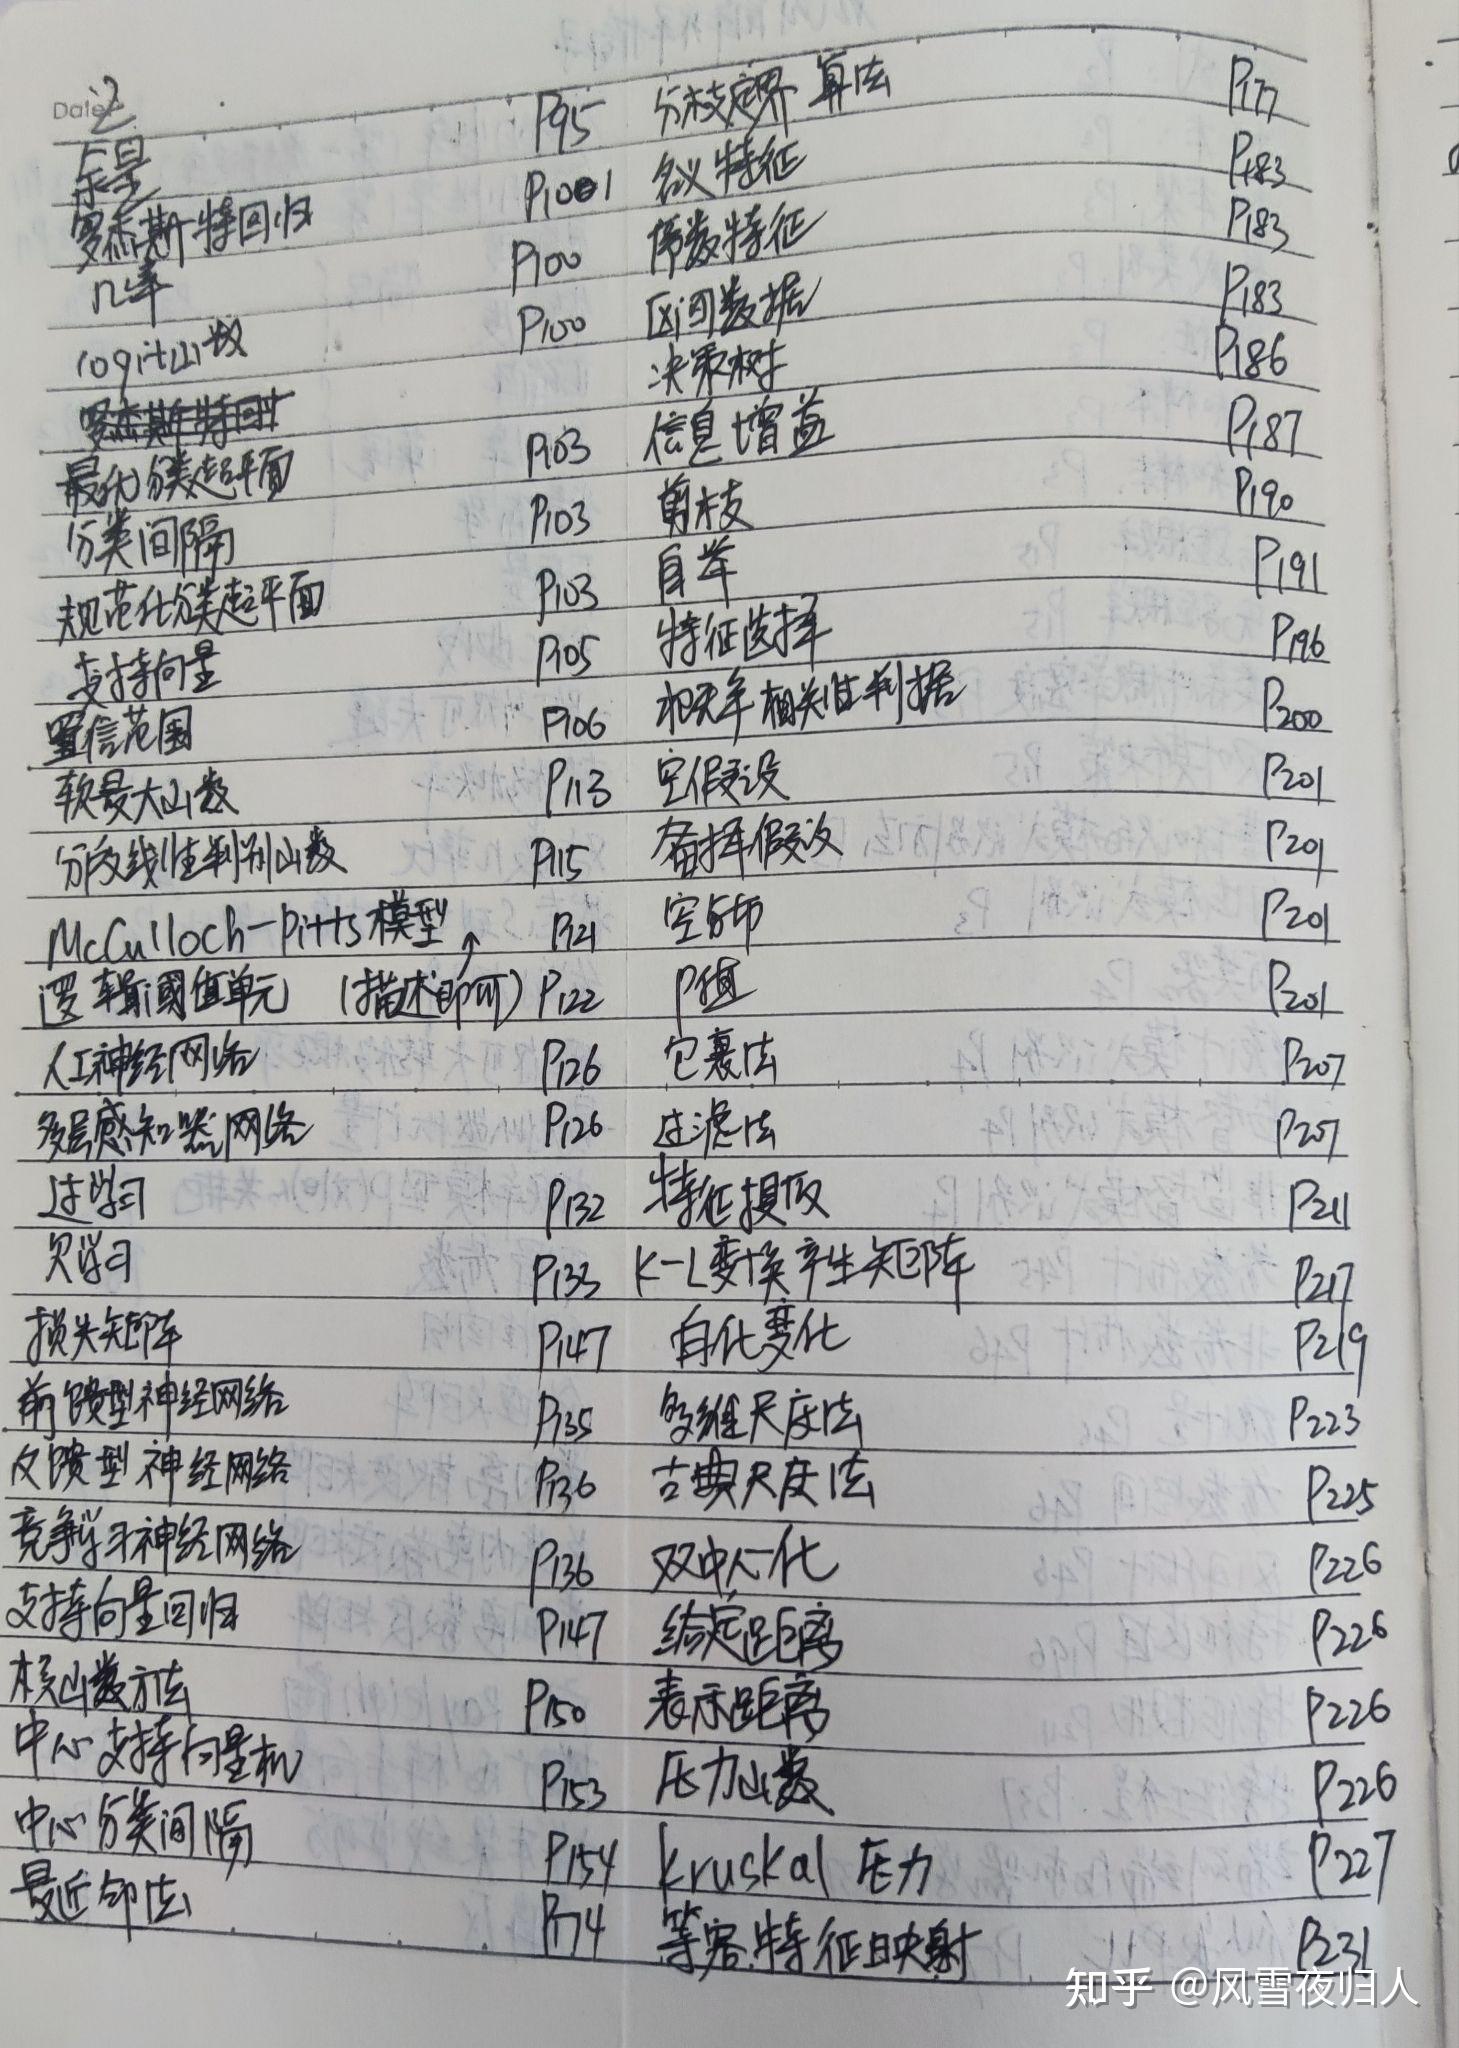 Date
余量 P95 分枝定界 算法 P177
罗杰斯特回归 P101 名义特征 P183
几率 P100 序数特征 P183
logit函数 P100 区间数据 P183
决策树 P186
罗杰斯特回归
最优分类超平面 P103 信息增益 P187
分类间隔 P103 剪枝 P190
规范化分类超平面 P103 自举 P191
支持向量 P105 特征选择 P196
置信范围 P106 相关性判据 P200
软最大函数 P113 空假设 P201
分段线性判别函数 P115 备择假设 P201
McCulloch-Pitts模型 P121 空分布 P201
逻辑阈值单元 (描述即可) P122 P值 P201
人工神经网络 P126 包裹法 P207
多层感知器网络 P126 过滤法 P207
过学习 P132 特征提取 P211
欠学习 P133 K-L变换产生矩阵 P217
损失矩阵 P147 白化变化 P219
前馈型神经网络 P135 多维尺度法 P223
反馈型神经网络 P136 古典尺度法 P225
竞争学习神经网络 P136 双中心化 P226
支持向量回归 P147 给定距离 P226
核函数方法 P150 表示距离 P226
中心支持向量机 P153 压力函数 P226
中心分类间隔 P154 Kruskal 压力 P227
最近邻法 P174 等容特征映射 P231
知乎 @风雪夜归人